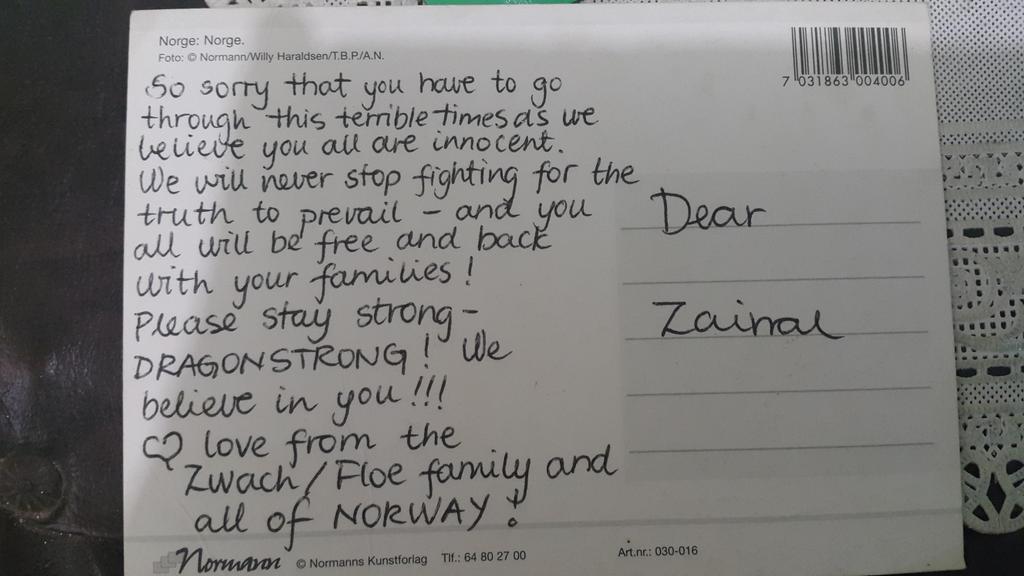 Norge: Norge.
Foto: © Normann/Willy Haraldsen/T.B.P./A.N.
7 031863 004006
So sorry that you have to go
through this terrible times as we
believe you all are innocent.
We will never stop fighting for the
truth to prevail - and you
all will be free and back
with your families!
Please stay strong -
DRAGONSTRONG! We
believe in you!!!
♡ love from the
Zwach/Floe family and
all of NORWAY!
Dear
Zainal
Normann © Normanns Kunstforlag Tlf.: 64 80 27 00 Art.nr.: 030-016